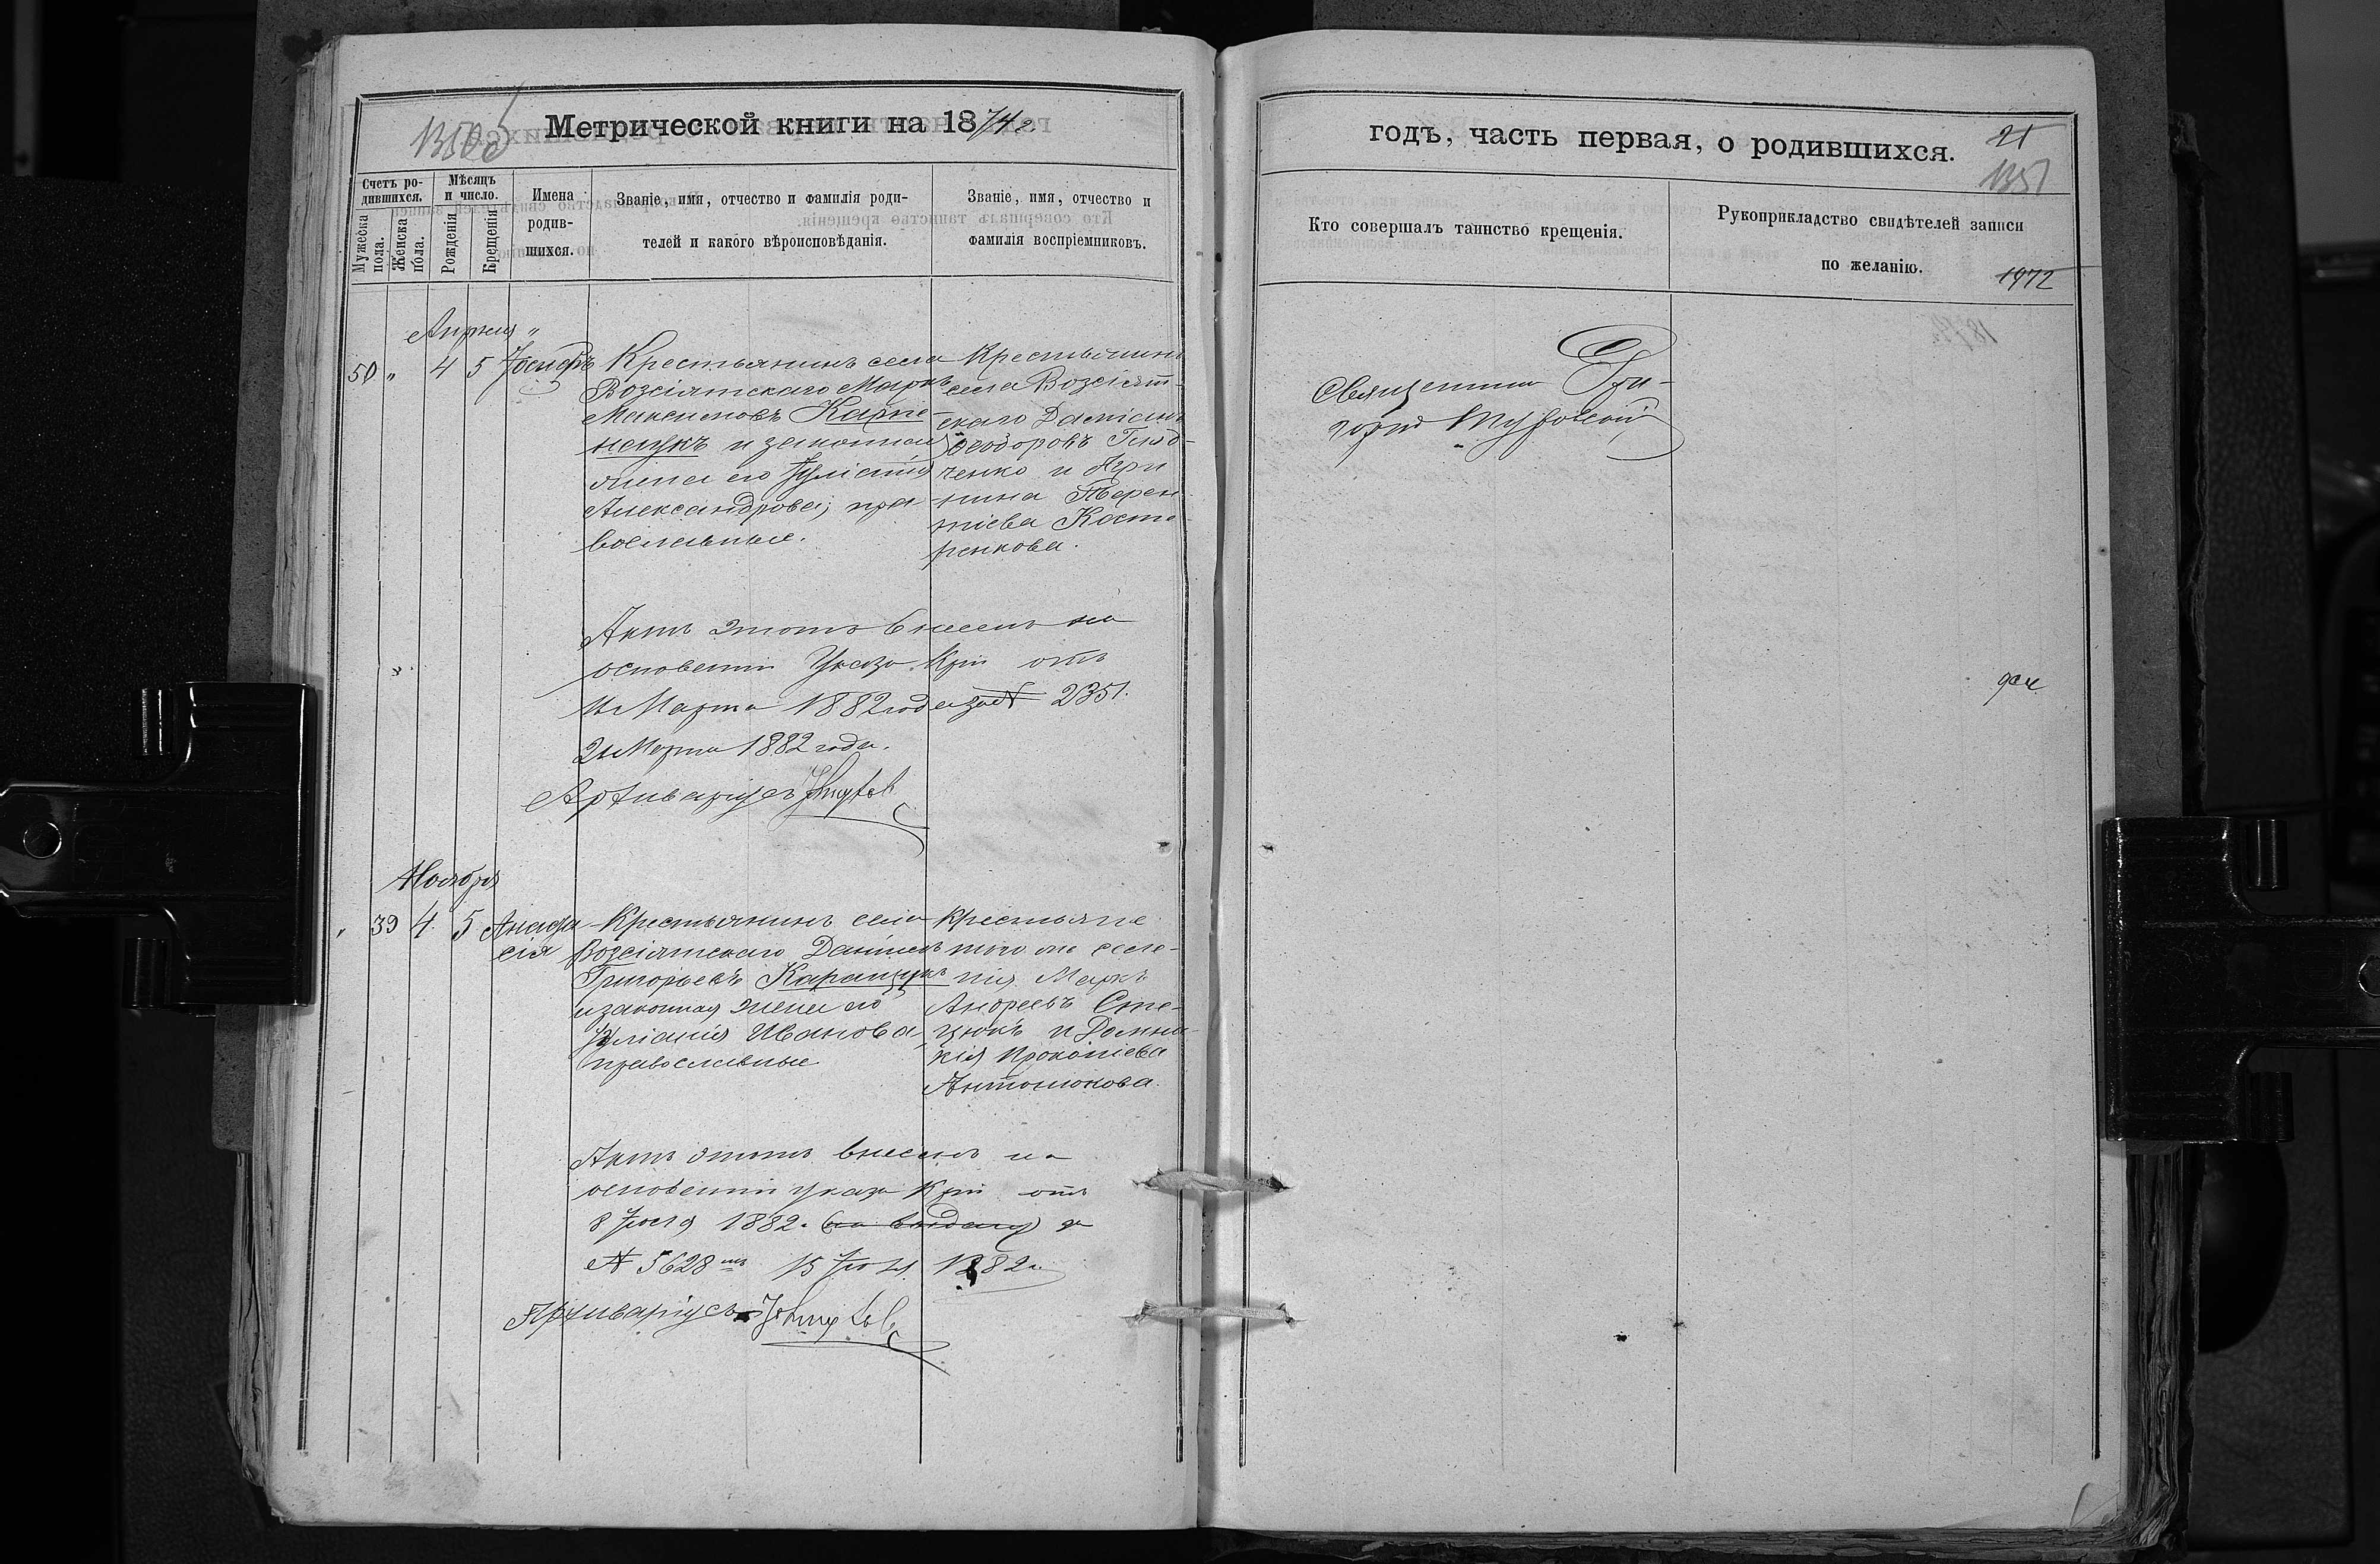 13505
Метрической книги на 1874 г.
Счетъ ро-
дившихся.
Мужеска
пола.
Женска
пола.
Мѣсяцъ
и число.
Рожденія
Крещенія
Имена
родив-
шихся.
Званіе, имя, отчество и фамилія роди-
телей и какого вѣроисповѣданія.
Званіе, имя, отчество и
фамилія воспріемниковъ.
Апрѣля "
50 " 4 5 Іосифъ
Крестьянинъ села
Возсіятскаго Маркъ
Максимовъ Карпе-
нчукъ и законная
жена его Іуліанія
Александрова, пра-
вославные.
Крестьянинъ
села Возсіят-
скаго Даміанъ
Ѳеодоровъ
ченко и Ири
нина Терен
тіева Косте
ренкова.
Актъ этотъ внесенъ на
основаніи Указа Х. Д. К. отъ
Марта 1882 года за № 2351.
Марта 1882 года.
Архиваріусъ
Ноября
" 39 4 5 Анафа
сія
Крестьянинъ села
Возсіятскаго Даніилъ
Григорьевъ
и законная жена его
Іуліанія Иванова
православные
Крестьяне
того же селе-
нія Маркъ
Андреевъ Сте-
цюкъ и Домни-
кія Прокопіева
Антонюкова.
Актъ этотъ внесенъ на
основаніи указа отъ
8 1882. за
№ 5628 15 1882 г.
Архиваріусъ
годъ, часть первая, о родившихся.
21
1351
Кто совершалъ таинство крещенія.
Рукоприкладство свидѣтелей записи
по желанію.
1972
Священникъ Гри-
горій